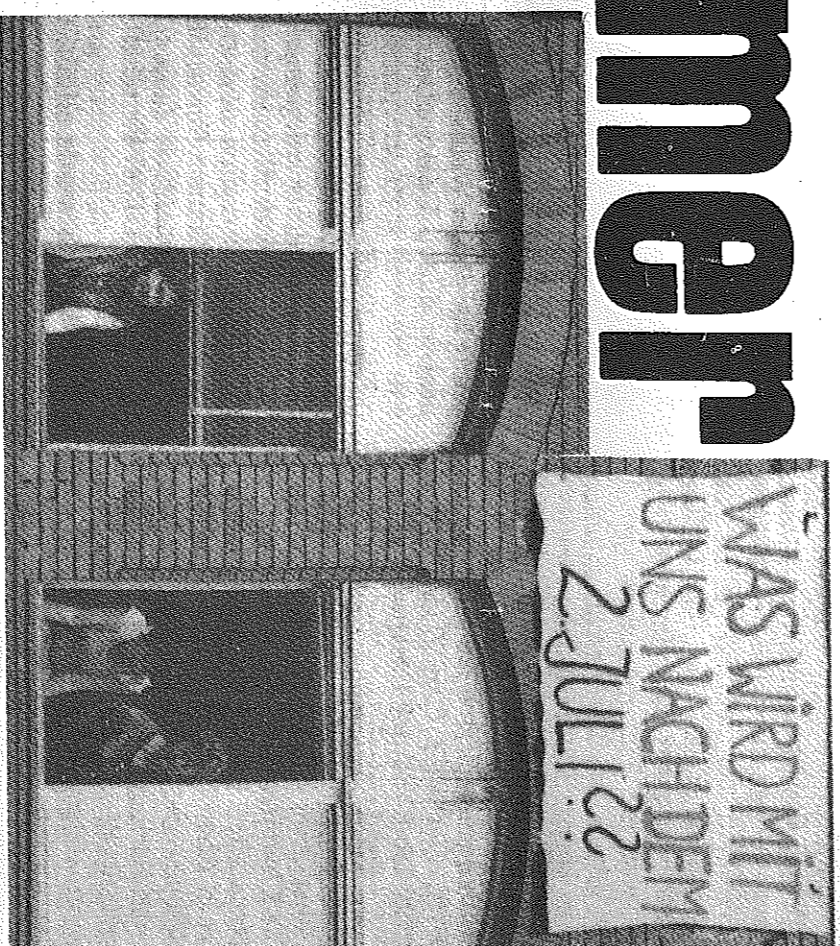 mer
WAS WIRD MIT
UNS NACH DEM
2. JULI ??